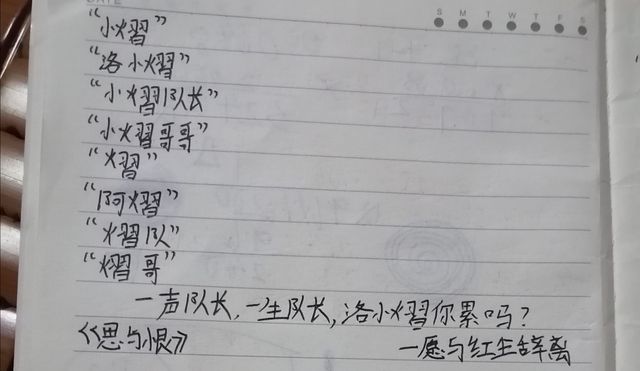 S M T W T F S
“小熠”
“洛小熠”
“小熠队长”
“小熠哥哥”
“熠”
“阿熠”
“熠队”
“熠哥”
一声队长，一生队长，洛小熠你累吗？
《思与恨》 一愿与红尘辞离